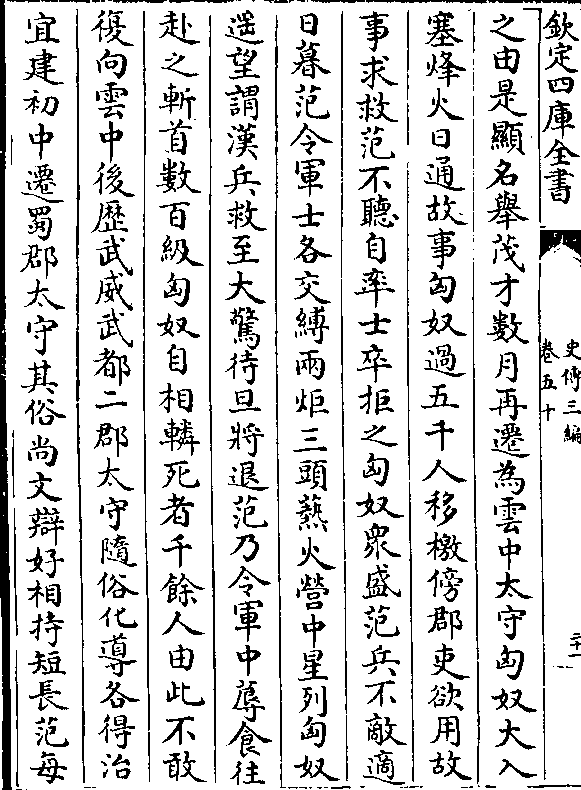 欽定四庫全書
史傳三編
卷五十
二十一
之由是顯名舉茂才數月再遷為雲中太守匈奴大入
塞烽火日通故事匈奴過五千人移檄傍郡吏欲用故
事求救范不聽自率士卒拒之匈奴衆盛范兵不敵適
日暮范令軍士各交縛兩炬三頭爇火營中星列匈奴
遥望謂漢兵救至大驚待旦將退范乃令軍中蓐食往
赴之斬首數百級匈奴自相轔死者千餘人由此不敢
復向雲中後歴武威武都二郡太守隨俗化導各得治
宜建初中遷蜀郡太守其俗尚文辯好相持短長范每